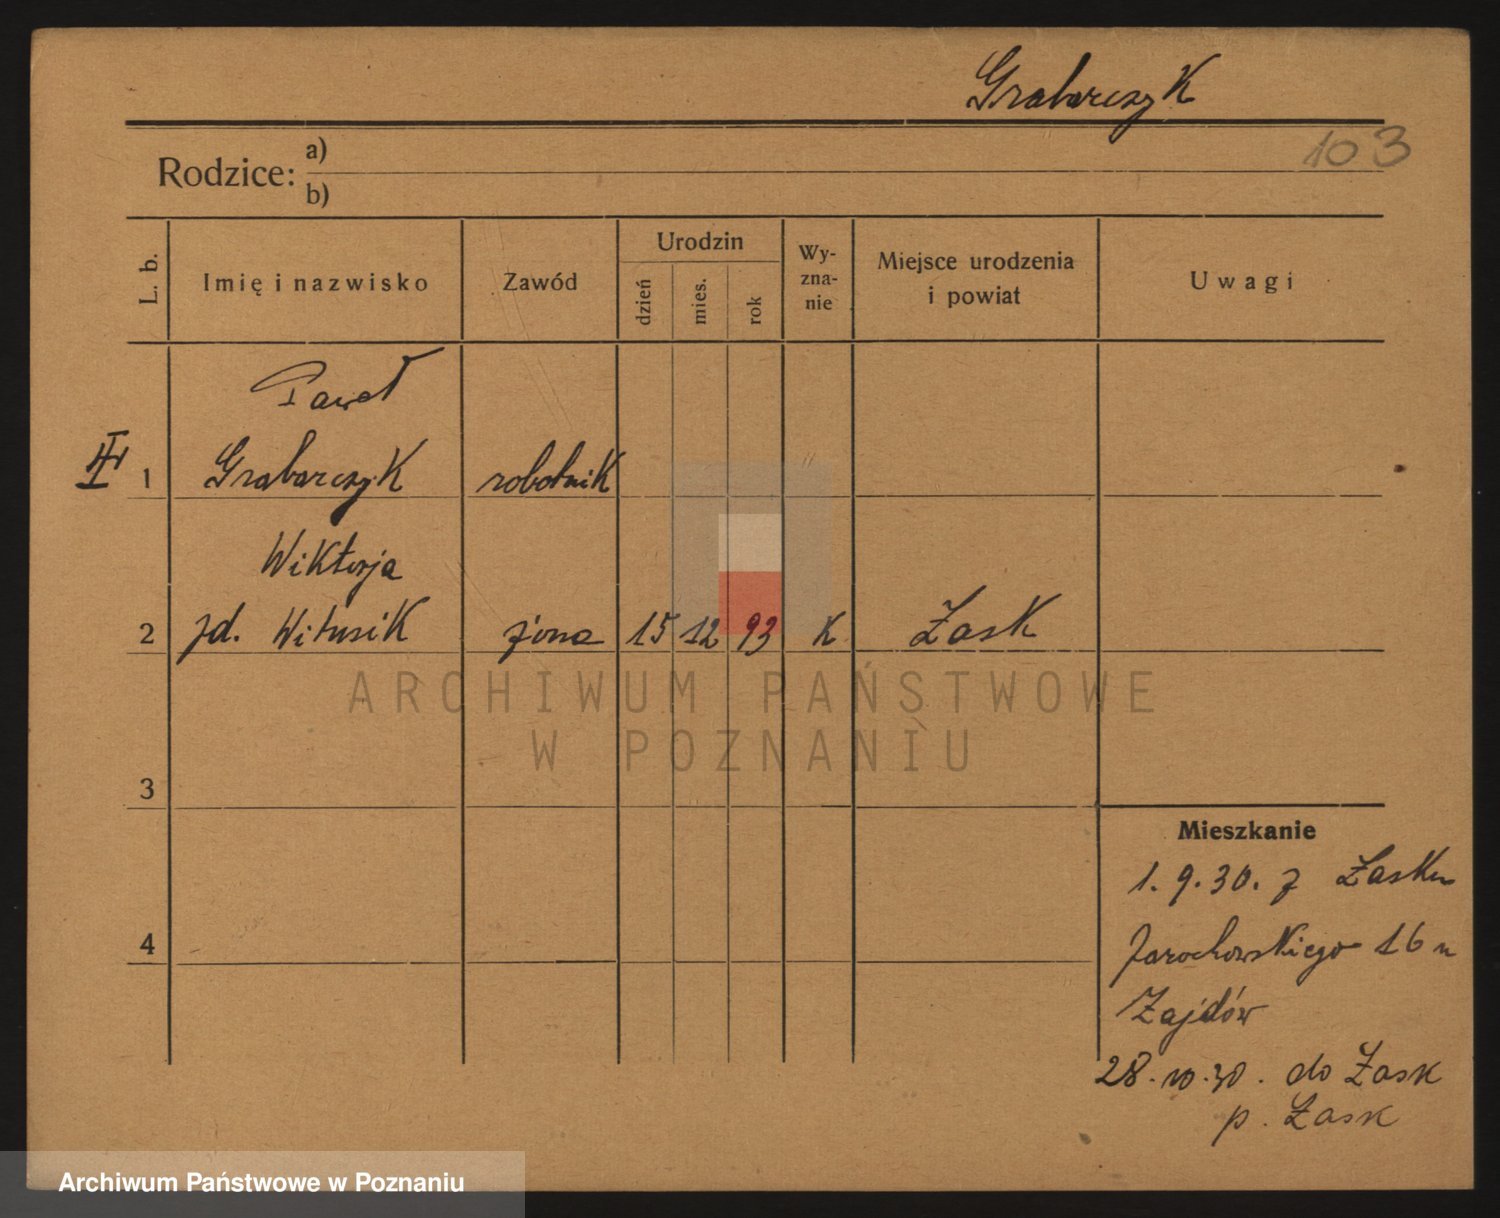 Grabarczyk
103
Rodzice: a)
b)
L. b. Imię i nazwisko Zawód Urodzin dzień mies. rok Wy-zna-nie Miejsce urodzenia i powiat Uwagi
Paweł
III 1 Grabarczyk robotnik
Wiktorja
2 zd. Witusik żona 15 12 93 k Łask
ARCHIWUM PAŃSTWOWE
W POZNANIU
3
Mieszkanie
1.9.30. z Łasku
4
Jarochowskiego 16 u
Zajdów
28.10.30. do Łask
p. Łask
Archiwum Państwowe w Poznaniu